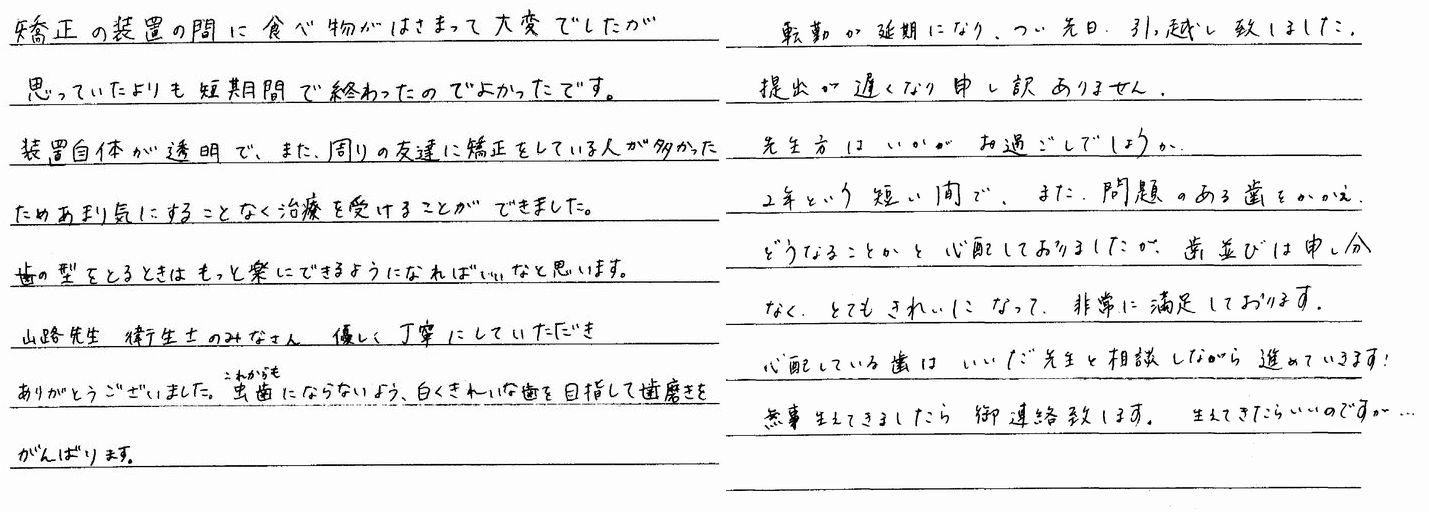 矯正の装置の間に食べ物がはさまって大変でしたが
思っていたよりも短期間で終わったのでよかったです。
装置自体が透明で、また、周りの友達に矯正をしている人が多かった
ためあまり気にすることなく治療を受けることができました。
歯の型をとるときはもっと楽にできるようになればいいなと思います。
山路先生 衛生士のみなさん 優しく丁寧にしていただき
ありがとうございました。これからも虫歯にならないよう、白くきれいな歯を目指して歯磨きを
がんばります。
転勤が延期になり、つい先日、引っ越し致しました。
提出が遅くなり申し訳ありません。
先生方はいかがお過ごしでしょうか。
2年という短い間で、また、問題のある歯をかかえ、
どうなることかと心配しておりましたが、歯並びは申し分
なく、とてもきれいになって、非常に満足しております。
心配している歯はいいだ先生と相談しながら進めていきます!
無事生えてきましたら御連絡致します。 生えてきたらいいのですが…